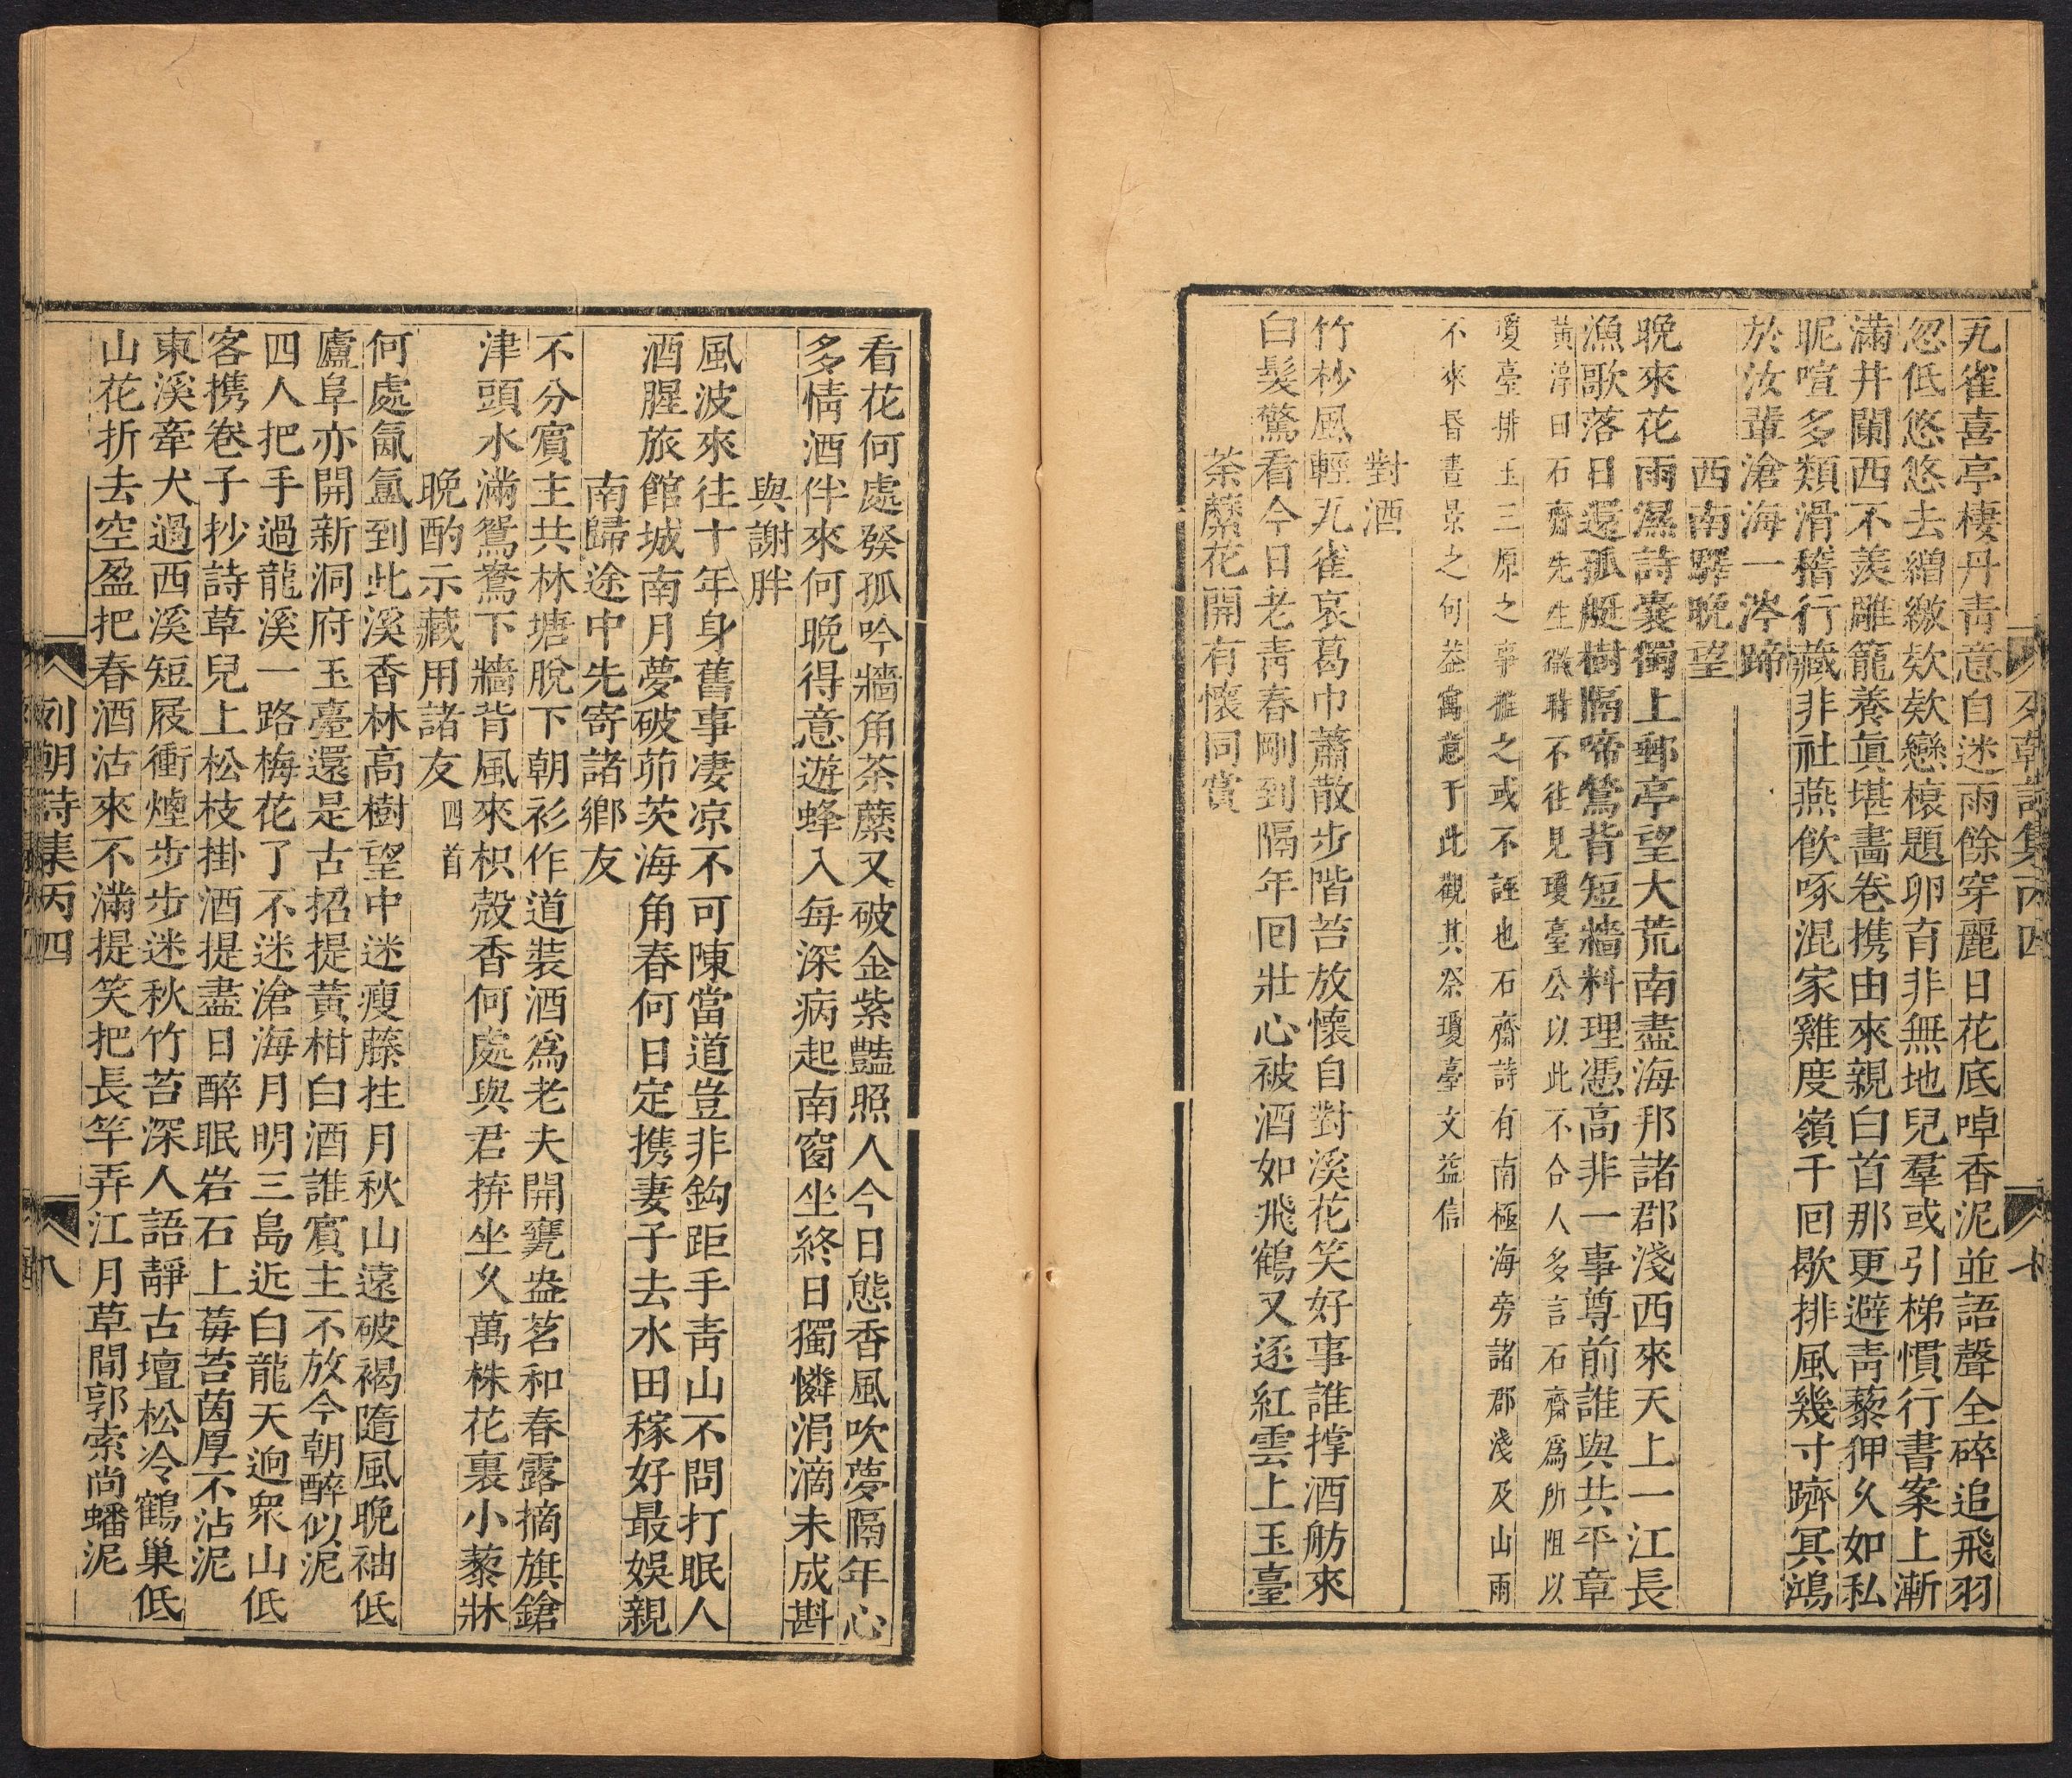 瓦雀喜亭棲丹靑意自迷雨餘穿麗日花底啅香泥並語聲全碎追飛羽
忽低悠悠去繒繳欸欸戀榱題卵育非無地兒羣或引梯慣行書案上漸
滿井闌西不羨雕籠養眞堪畵卷携由來親白首那更避靑藜狎久如私
昵喧多類滑稽行藏非社燕飮啄混家雞度嶺千囘歇排風幾寸躋冥鴻
於汝輩滄海一涔蹄
西南驛晚望
晚來花雨濕詩囊獨上郵亭望大荒南盡海邦諸郡淺西來天上一江長
漁歌落日還孤艇樹隔啼鶯背短牆料理憑高非一事尊前誰與共平章
黃淳曰石齋先生徵聘不往見瓊臺公以此不合人多言石齋爲所阻以
瓊臺排玉三原之事推之或不誣也石齋詩有南極海旁諸郡淺及山雨
不來昏晝景之句葢寓意于此觀其祭瓊臺文益信
對酒
竹杪風輕瓦雀哀葛巾蕭散步階苔放懷自對溪花笑好事誰撑酒舫來
白髮驚看今日老靑春剛到隔年囘壯心被酒如飛鶴又逐紅雲上玉臺
荼蘼花開有懷同賞
看花何處發孤吟牆角荼蘼又破金紫豔照人今日態香風吹夢隔年心
多情酒伴來何晚得意遊蜂入每深病起南窗坐終日獨憐涓滴未成斟
與謝胖
風波來往十年身舊事凄凉不可陳當道豈非鈎距手靑山不問打眠人
酒腥旅館城南月夢破茆茨海角春何日定携妻子去水田稼好最娛親
南歸途中先寄諸鄕友
不分賓主共林塘脫下朝衫作道裝酒爲老夫開甕盎茗和春露摘旗鎗
津頭水滿鴛鴦下牆背風來枳殼香何處與君拚坐久萬株花裏小藜牀
晚酌示藏用諸友四首
何處氤氳到此溪香林高樹望中迷瘦藤拄月秋山遠破褐隨風晚袖低
廬阜亦開新洞府玉臺還是古招提黃柑白酒誰賓主不放今朝醉似泥
四人把手過龍溪一路梅花了不迷滄海月明三島近白龍天逈衆山低
客携卷子抄詩草兒上松枝掛酒提盡日醉眠岩石上莓苔茵厚不沾泥
東溪牽犬過西溪短屐衝煙步步迷秋竹苔深人語靜古壇松冷鶴巢低
山花折去空盈把春酒沽來不滿提笑把長竿弄江月草間郭索尚蟠泥
列朝詩集丙四
八